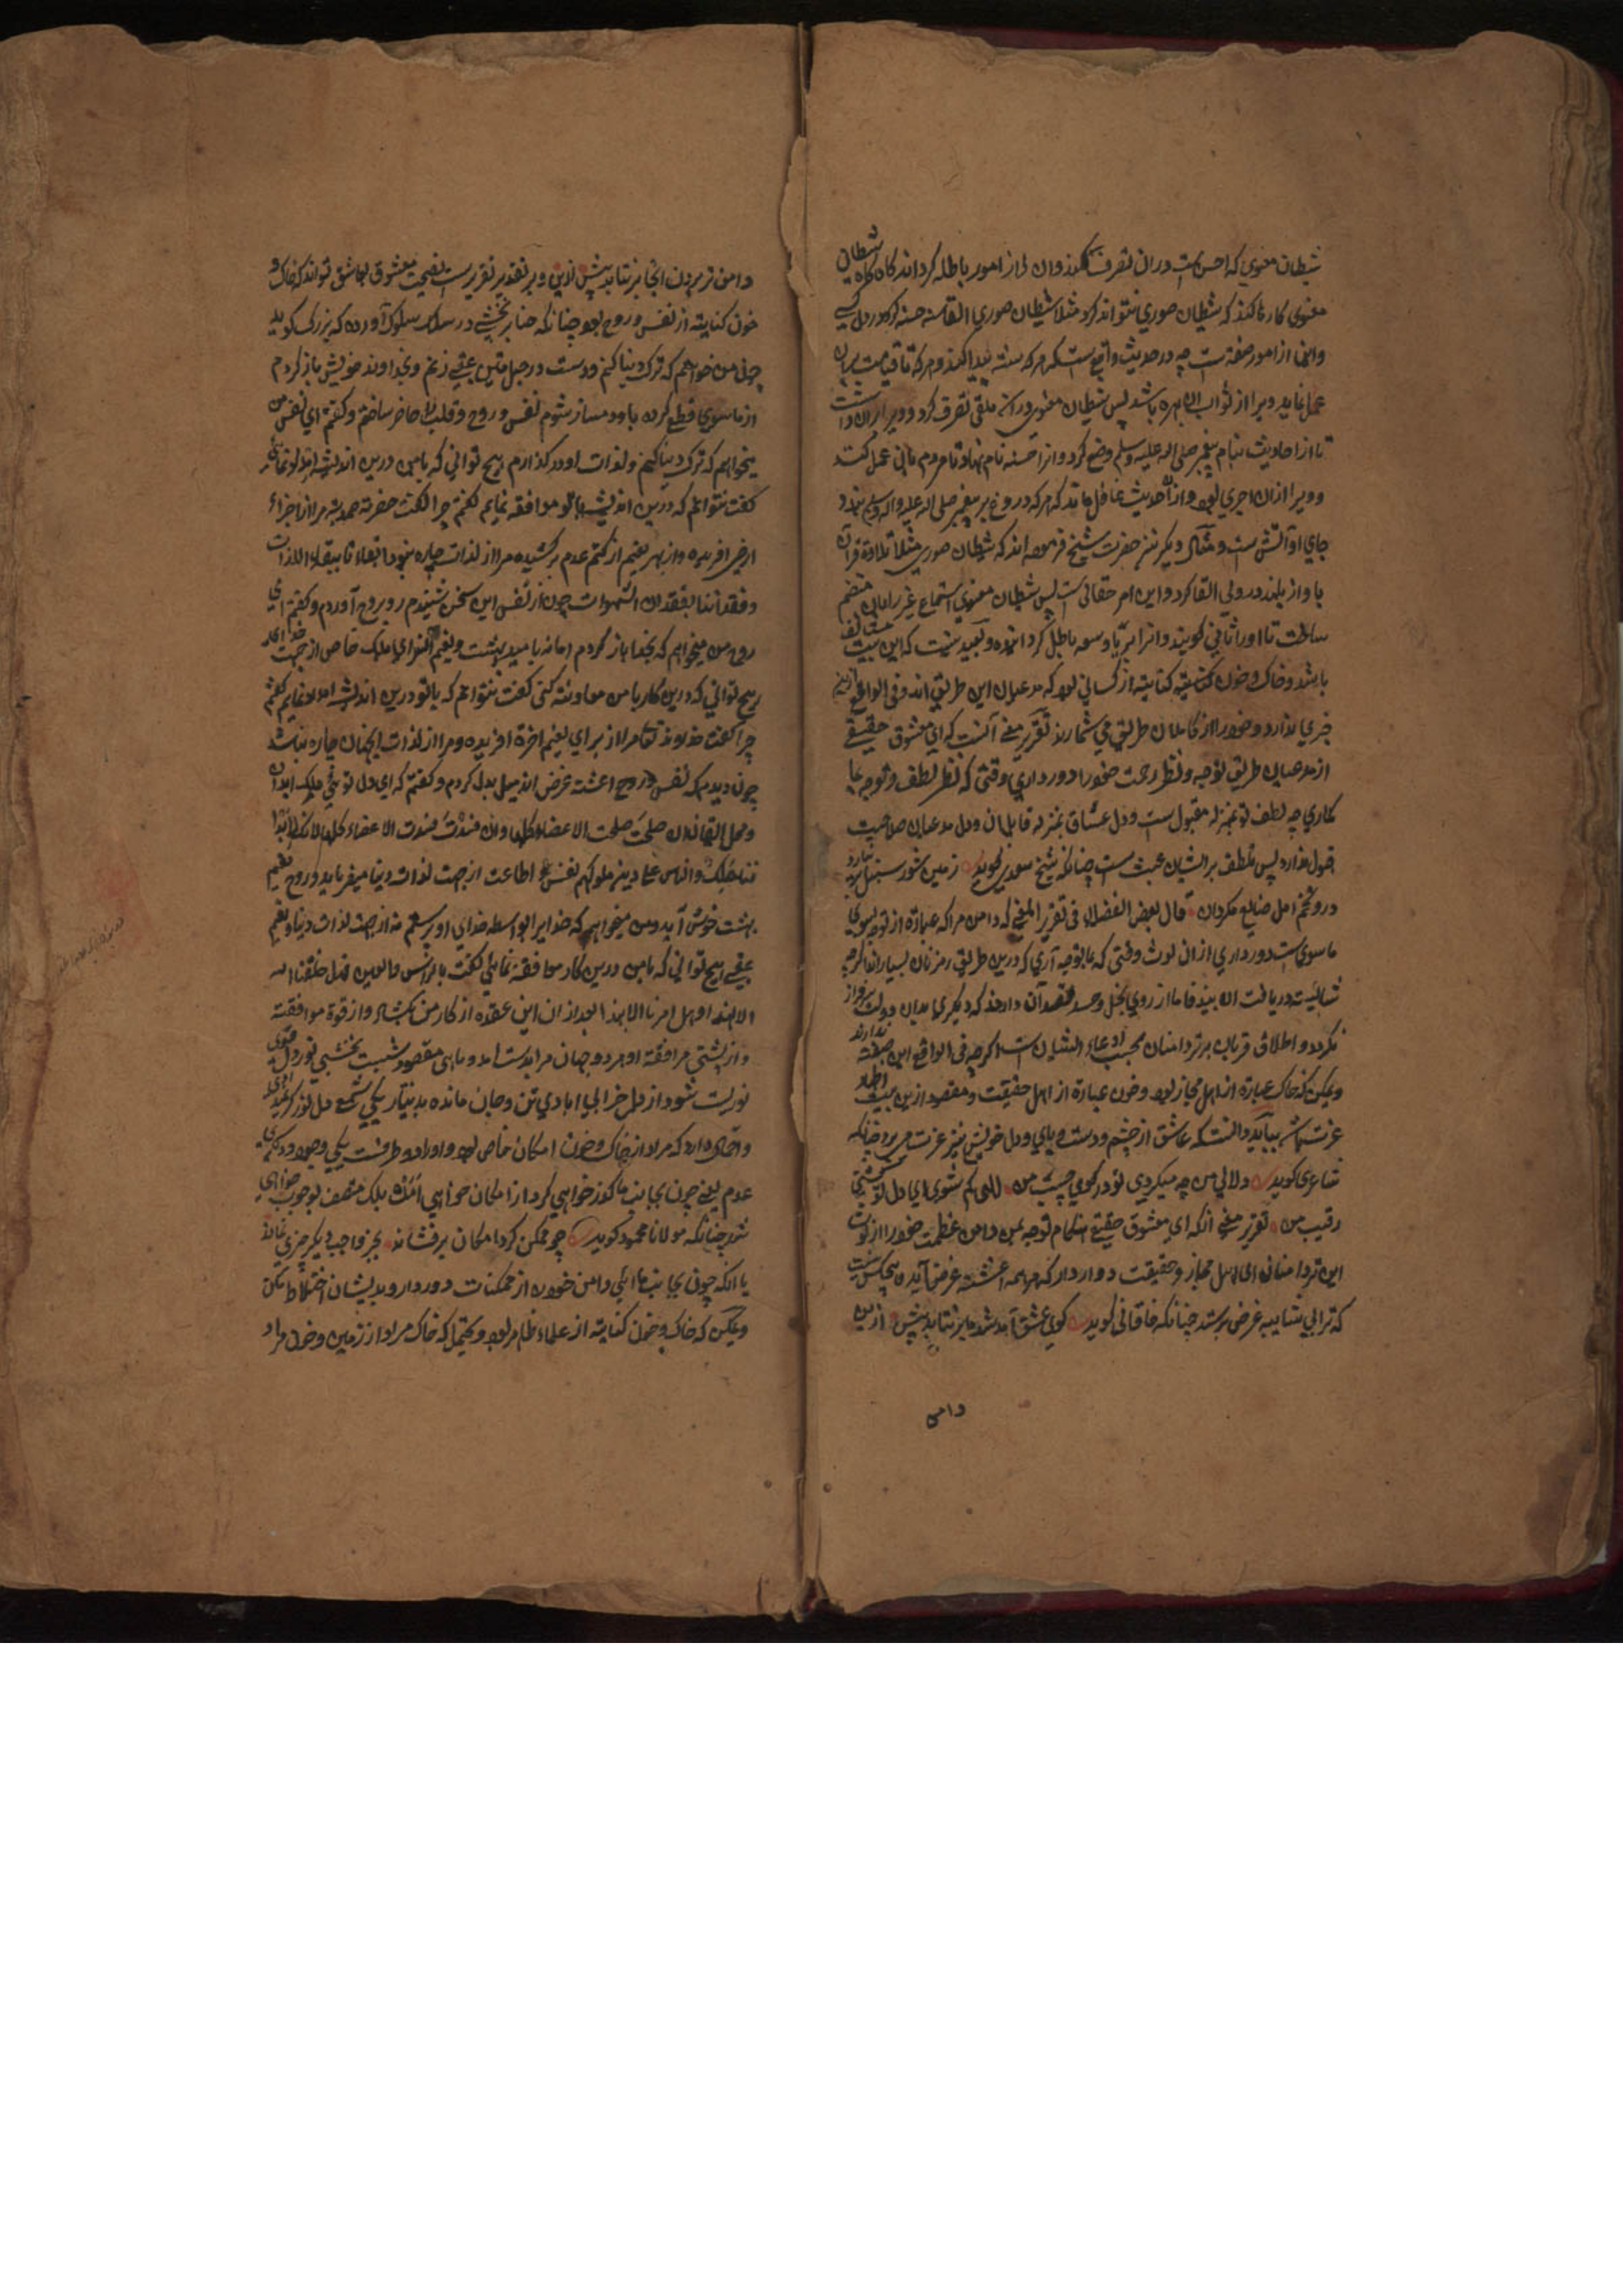 شیطان معنوی که احسن است دران تصرف کند وان را از امور باطله کرداند کاه کاه شیطان
معنوی کارها کند که شیطان صوری نتواند کرد مثلا شیطان صوری القاء سنه حسنه کرد در دل کسی
وانها از امور حقه است چه در حدیث واقع است که هر که سنت پیدا کند و هر که تا قیامت بران
عمل نماید ویرا از ثواب ان بهره باشد پس شیطان معنوی در انه ملقی تصرف کرد و ویرا بران داشت
تا از احادیث بنام پیغمبر صلی الله علیه وسلم وضع کرد و انرا حسنه نام نهاد تا مردم بانی عمل کنند
و ویرا ازان اجری بود و ازان حدیث غافل ماند که هر که دروغ بر پیغمبر صلی الله علیه واله وسلم بندد
جای او آتش است و مثال دیکر نیز حضرت شیخ فرموده اند که شیطان صوری مثلا تلاوة قران
با واز بلند در ولی القا کرد و این امر حقانی است پس شیطان معنوی استماع غیر را بان منضم
ساخت تا او را ثنا کویند و انرا بریا و سمعه باطل کردانیده و بعید نیست که این بیت
باشد و خاک و خون کنایة از کسانی بود که مدعیان این طریق اند و فی الواقع ازین
خبری ندارد و خود را از کاملان طریق می شمارند تقریر معنی آنست که ای معشوق حقیقی
از مدعیان طریق توجه و نظر رحمت خود را دور داری وقتی که نظر لطف و توجه بما
کماری چه لطف تو بمنزله مقبول است و دل عشاق بمنزله قابلان و دل مدعیان صلاحیت
قبول ندارد پس تلطف بر ایشان عبث است چنانکه شیخ سعدی کوید زمین شور سنبل برنیارد
درو تخم امل ضایع مکردان قال بعض الفضلاء فی تقریر المعنی که دامن مراکه عبارة از توجه بسوی
ماسوی است دور داری ازان لوث وقتی که بما توجه آری که درین طریق رمزنان بسیار اند اکرچه
شایسته دریافت اله بیند فاما از روی بخل و حسد قصد آن دارند که دیکری بدان دولت سرفراز
نکردد و اطلاق قربان بر تردامنان بحسب ادعاء ایشان است اکرچه فی الواقع این صفته ندارند
و ممکن که خاک عبارة از اهل مجاز بود و خون عبارة از اهل حقیقت و مقصود ازین بیت اظهار
عزت باشد بباید دانست که عاشق از چشم و دست و پای و دل خویش نیز عزت می برد چنانکه
شاعری کوید دلا لی من چه میکردی تو در کوی حبیب من للهی کم شوی ای دل تو کشتی
رقیب من تقریر معنی آنکه ای معشوق حقیقی هنکام توجه بمن دامن عظمت خود را از لوث
این تردامنان اعنی اهل مجاز و حقیقت دور دار که همه اغشته غرض آید و هیچکس نیست
که ترا بی شایبه غرض پرستد چنانکه خاقانی کوید کوی عشق آمد شد ما بر نتابد بیش ازین
دامن
دامن تر بردن انجا بر نتابد بیش ازین و بر تقدیر تقریر است نصیحت معشوق بعاشق تواند که خاک و
خون کنایته از نفس و روح بود چنانکه ضیا بخشبی در سلک سلوک آورده که بزرکی کوید
چون من خواهم که ترک دنیا کنم و دست در حبل متین عقبی زنم و بخداوند خویش باز کردم
از ماسوی قطع کرده با او دمساز شوم نفس و روح و قلب را حاضر ساختم و کفتم ای نفس من
میخواهم که ترک دنیا کنم و لذات او در کذارم هیچ توانی که با من درین اندیشه امداد نمائی
کفت نتوانم که درین اندیشه با تو موافقه نمایم کفتم چرا کفت حضرة صمدیة مرا از اجزاء
ارضی افریده و از بهر نعیم از کتم عدم برکشیده مرا از لذات چاره نبود بقاءنا ببقاء اللذات
و فقداننا بفقدان الشهوات چون از نفس این سخن شنیدم رو بروح آوردم و کفتم ای
روح من میخواهم که بخدا باز کردم اما نه بامید بهشت و نعیم اخروی بلکه خاص از جهت خدای
هیچ توانی که درین کار با من معاونته کنی کفت نتوانم که با تو درین اندیشه امداد نمایم کفتم
چرا کفت خداوند تعالی مرا از برای نعیم اخرة افریده و مرا از لذات انجهان چاره نباشد
چون دیدم که نفس و روح اغشته غرض اند میل بدل کردم و کفتم که ای دل توئی ملک ابدان
و محل ایقان ان صلحت صلحت الاعضاء کلها وان فسدت فسدت الاعضاء کلها
والناس علی دین ملوکهم نفس اطاعت از جهت لذات دنیا میفرماید و روح نعیم
بهشت خوش آید و من میخواهم که خدا را بواسطه خدای او پرستم نه از جهت لذات دنیا و نعیم
عقبی هیچ توانی که با من درین کار موافقة نمایی کفت بالراس والعین فدل خلقنا الله
الا لهذا و هل امرنا الا بهذا بعد ازان این عقده از کار من بکشاد و از قوة موافقته
و از پشتی مرافقة او هر دو جهان مرا بدست امد و ماهی مقصود بشست بخشبی نور دل قوی
نوریست شود از دل خرابی ابادی تن و جان مانده بدنیا تاریکی شمع دل نور کرد
و احتمال دارد که مراد از خاک و خون امکان خاص بود و او را دو طرفست یکی وجود و دیکری
عدم یعنی چون بجانب ما کوذر خواهی کرد از امکان خواهی امد بلکه متصف بوجوب خواهی
شد چنانکه مولانا محمود کوید چو ممکن کرد امکان برفشاند بجز واجب دیکر چیزی نماند
یا انکه چون بجانب ما ایی دامن خود از ممکنات دور دار و بدیشان اختلاط مکن
و ممکن که خاک و خون کنایته از علماء ظاهر بود و یحتمل که خاک مراد از زمین و خون مراد